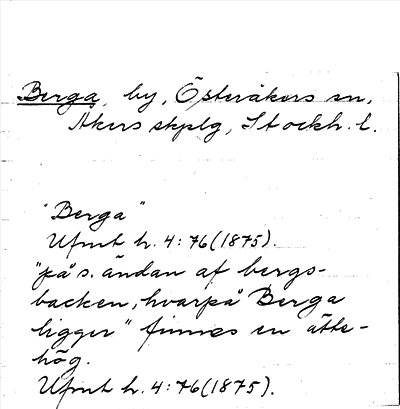 Berga, by, Österåkers sn,
Åkers skplg, Stockh. l.
"Berga"
Ufmt h. 4:76 (1875).
"på s. ändan af bergs-
backen, hvarpå Berga
ligger" finnes en ätte-
hög.
Ufmt h. 4:76 (1875).